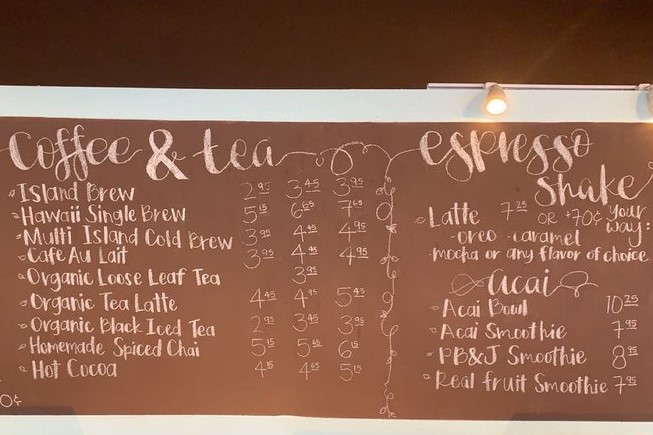 Coffee & tea
Island Brew 2.95 3.45 3.95
Hawaii Single Brew 5.15 6.65 7.65
Multi Island Cold Brew 3.95 4.45 4.95
Cafe Au Lait 3.95 4.45 4.95
Organic Loose Leaf Tea 3.95
Organic Tea Latte 4.45 4.95 5.45
Organic Black Iced Tea 2.95 3.45 3.95
Homemade Spiced Chai 5.15 5.65 6.15
Hot Cocoa 4.15 4.65 5.15
0¢
espresso
shake
Latte 7.25 OR +70¢ your way:
-oreo -caramel
-mocha or any flavor of choice
acai
Acai Bowl 10.25
Acai Smoothie 7.95
PB&J Smoothie 8.95
Real fruit Smoothie 7.95